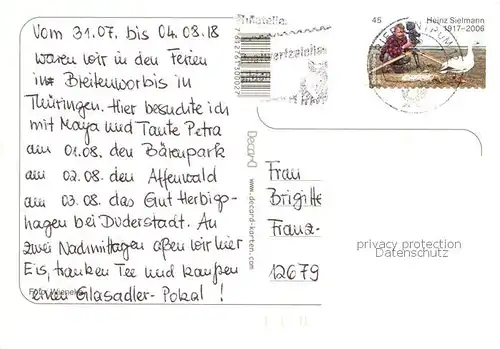 Vom 31.07. bis 04.08.18
waren wir in den Ferien
in Breitenworbis in
Thüringen. Hier besuchte ich
mit Maya und Tante Petra
am 01.08. den Bärenpark
am 02.08. den Affenwald
am 03.08. das Gut Herbigs-
hagen bei Duderstadt. An
zwei Nachmittagen aßen wir hier
Eis, tranken Tee und kauften
einen Glasadler-Pokal!
Philatelie
45 Heinz Sielmann
1917–2006
Decard
www.decard-karten.com
Frau
Brigitte
Franz-
12679
privacy protection
Datenschutz